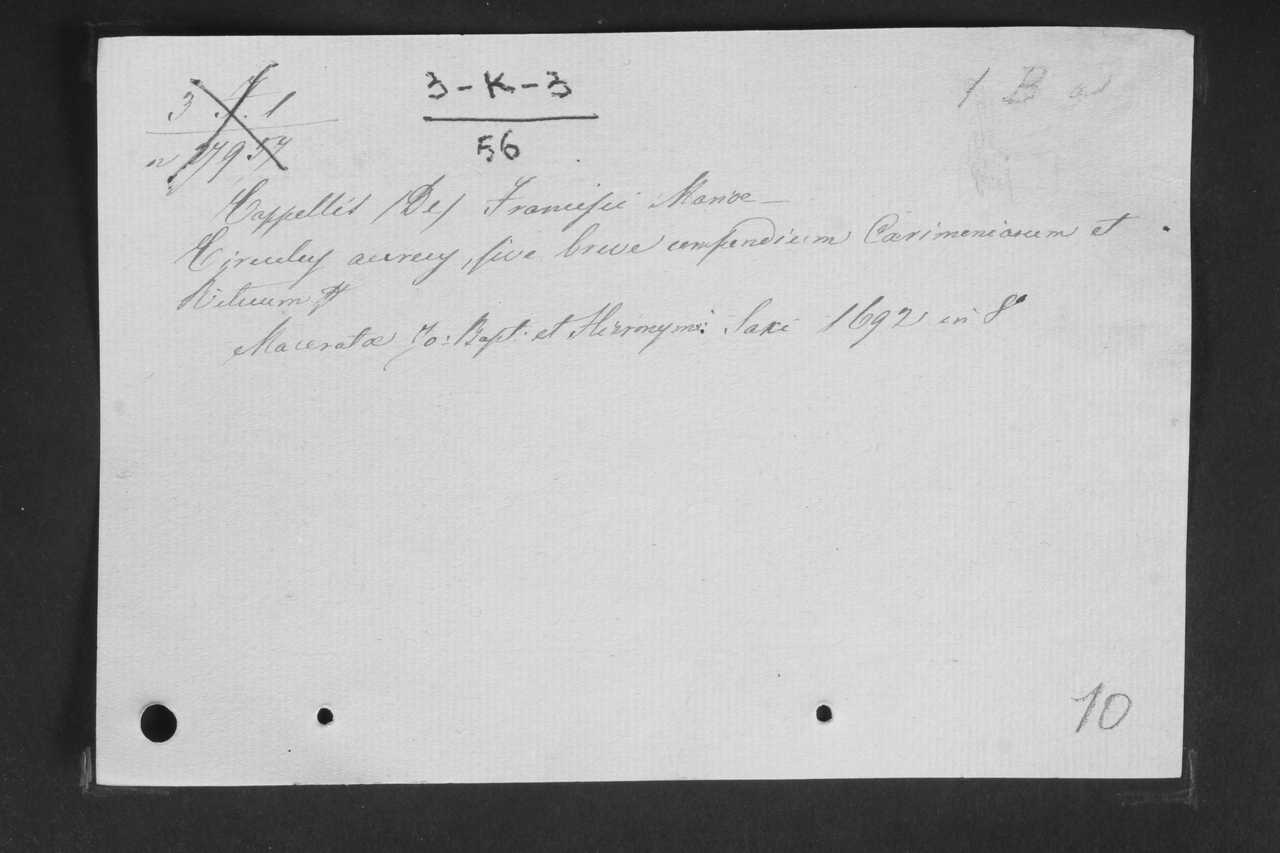 3 1
n 17957
3-K-3
56
Cappellis (De) Francisci Mariae —
Circulus aureus, sive breve compendium Cærimoniarum et
Rituum
Maceratæ Jo: Bapt. et Hieronymi Saxi 1692 in 8°
10